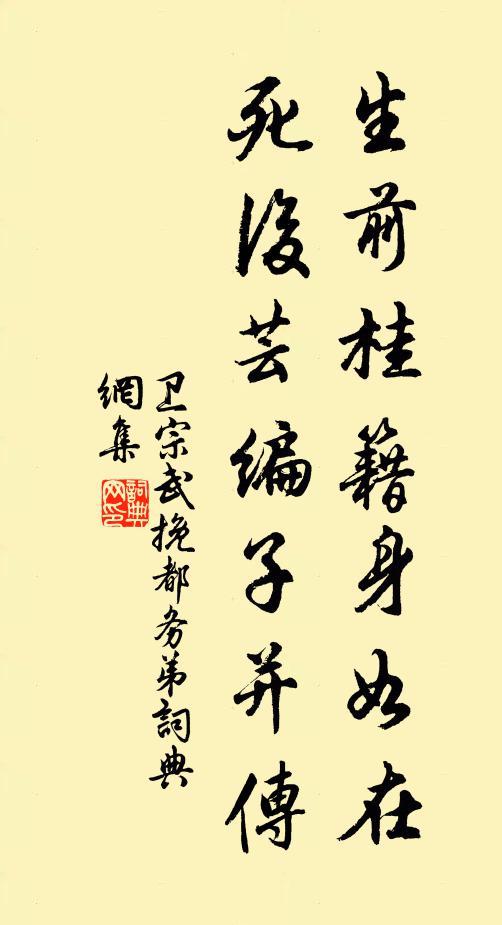 生前桂籍身如在
死後芸编子并傳
卫宗武挽都务弟詞典
網集
詞典網印